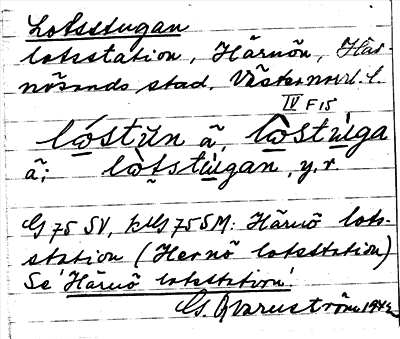 Lotsstugan
lotsstation, Härnön, Här-
nösands stad, Västernorrl. l.
IV F15
lóstŭn ã, lòstùga
ã; lòtstùgan, y.r.
G 75 SV, kllg 75 SM: Härnö lots-
station (Hernö lotsstation)
Se 'Härnö lotsstation'
G. Qvarnström 1942